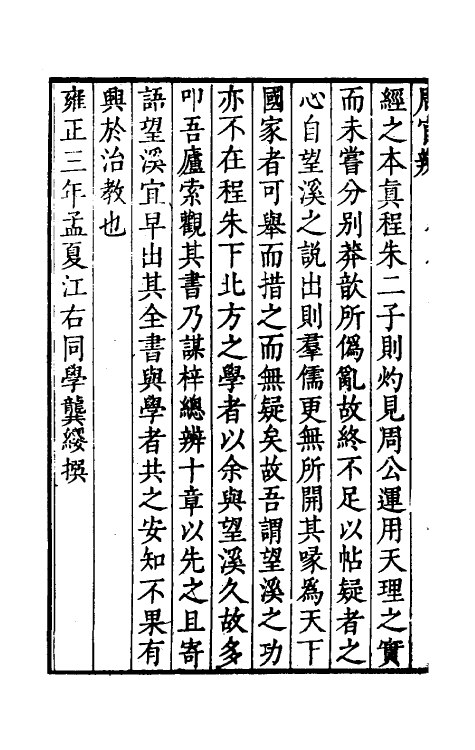 周官辨
經之本真程朱二子則灼見周公運用天理之實
而未嘗分别莽歆所僞亂故終不足以帖疑者之
心自望溪之説出則羣儒更無所開其喙爲天下
國家者可舉而措之而無疑矣故吾謂望溪之功
亦不在程朱下北方之學者以余與望溪久故多
叩吾廬索觀其書乃謀梓總辨十章以先之且寄
語望溪宜早出其全書與學者共之安知不果有
興於治教也
雍正三年孟夏江右同學龔纓撰